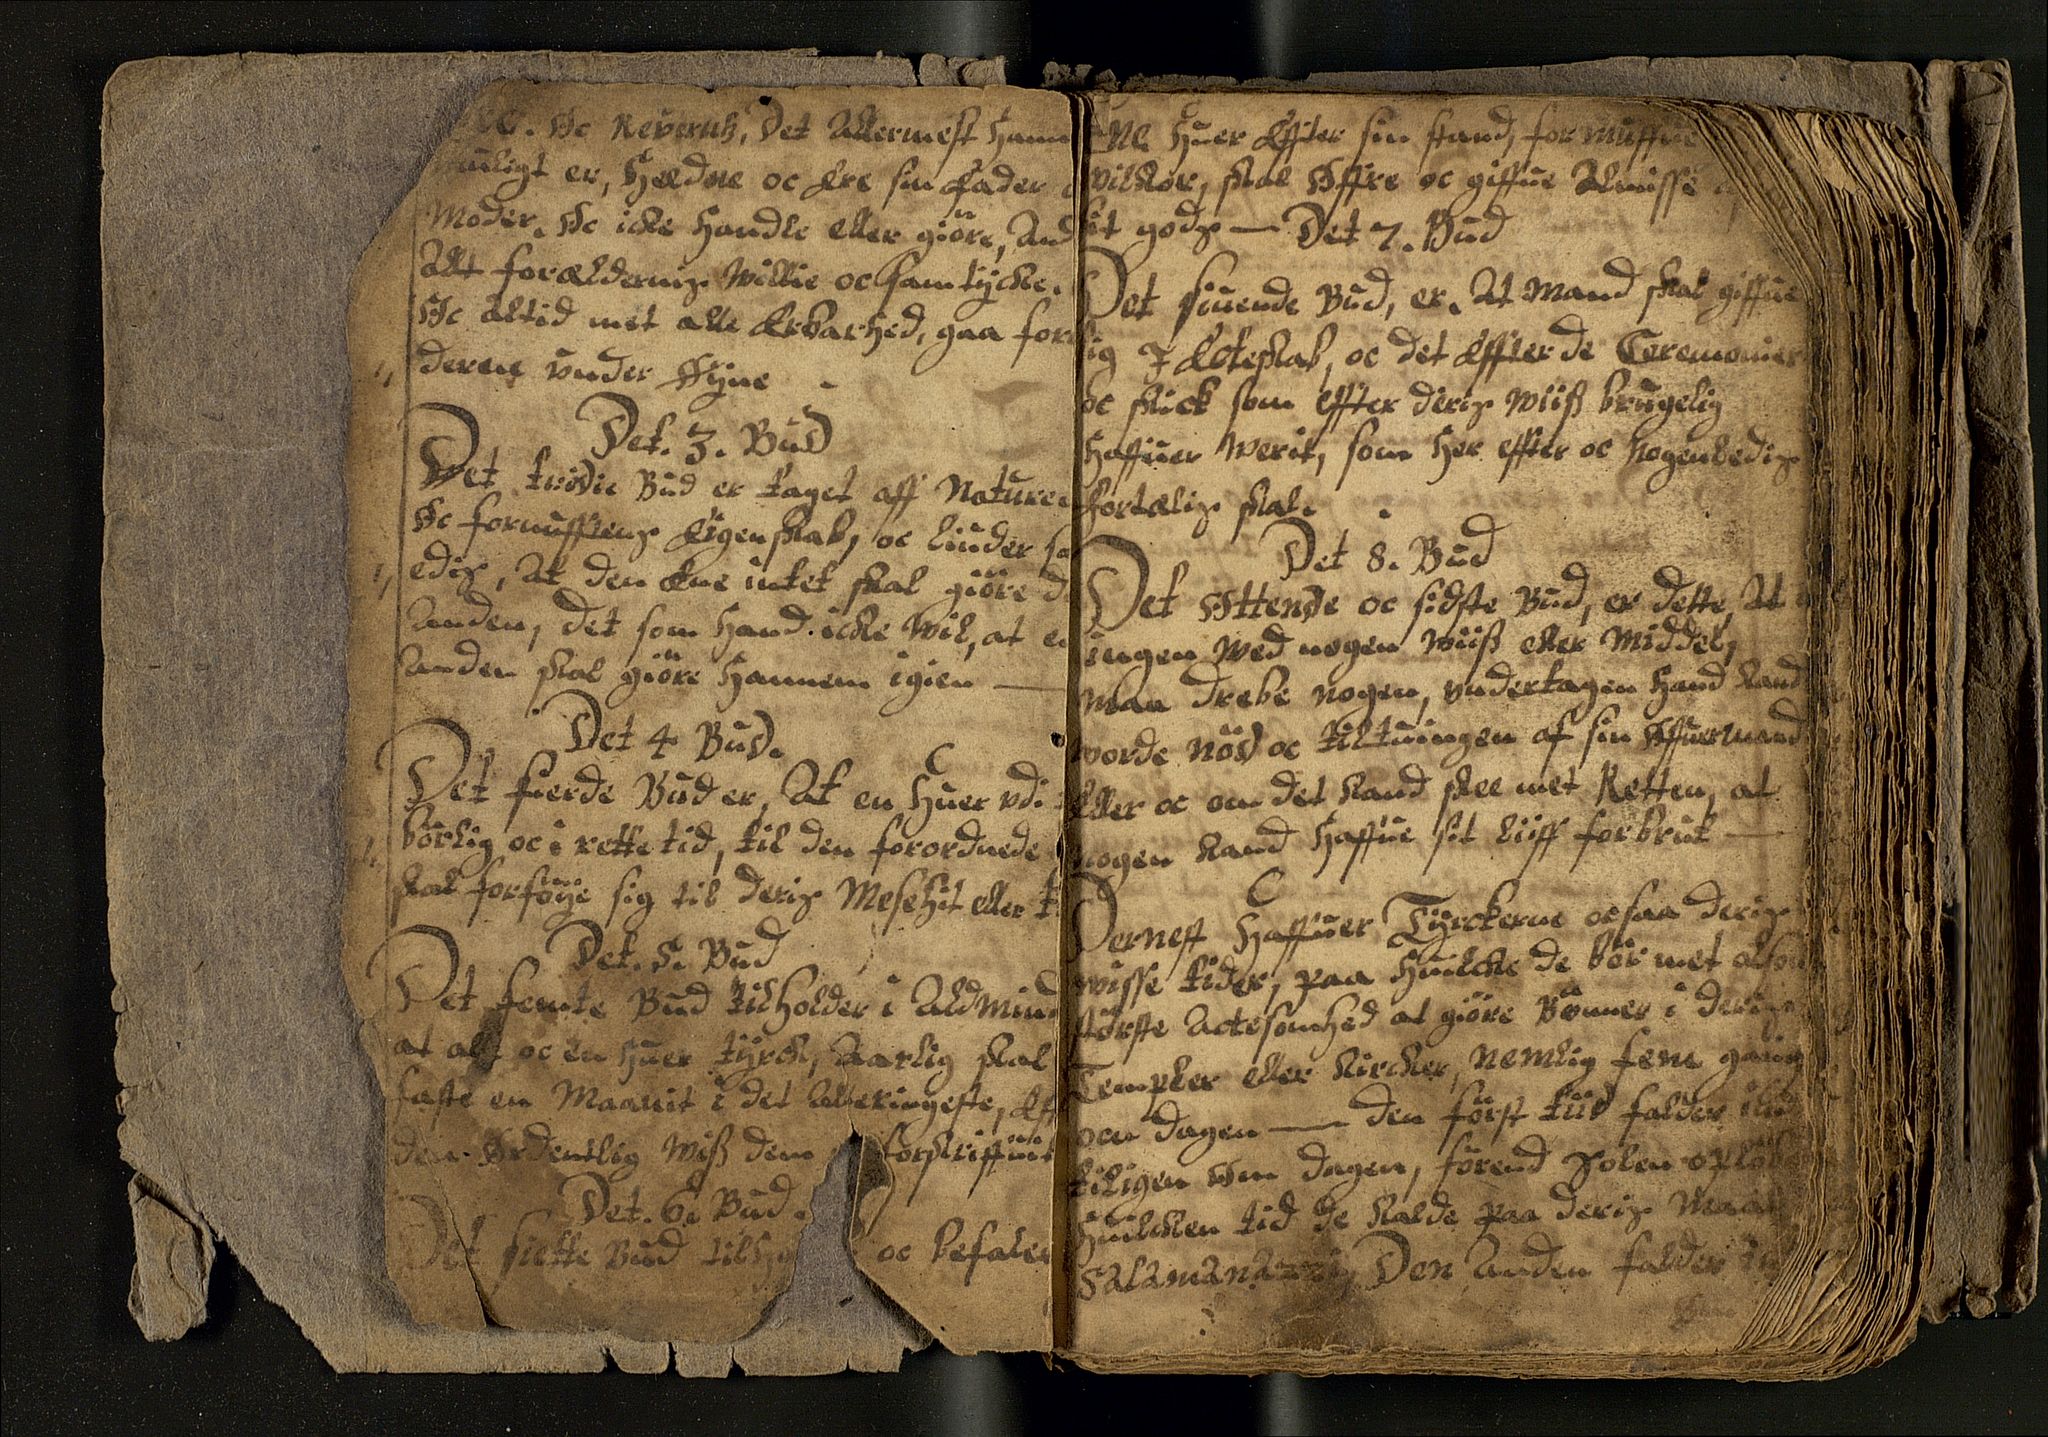 Oc Reverentz, det Allermest Hann
muligt er, Heldne oc Ære sin Fader
Moder. Oc icke Handle eller giöre, And
Alt foræld­ernis Willie oc samtycke.
Oc altid met alle Ærbarhed, gaa for
derene vnder Öyne
Det. 3. Bud
Det tredie Bud er taget aff Nature
Oc fornufftens Eigenskab, oc liuder sa
edis, At den Ene intet skal giöre d
Anden, det som Hand icke Wil, at en
Anden skal giöre Hannem igien —
Det 4 Bud.
Det fierde Bud er, At en Huer vdi
börlig oc i rette tid, til den forordnede
skal forföye sig til deris Meschit eller
Det. 5. Bud
Det femte Bud tilholder i Aldmind
at alt oc en huer tyrck, Aarlig skal
faste en Maanit i det Alleringeste, Eff
den Ordentlig Wiß dem forskriffuit
Det. 6. Bud.
Det siette Bud oc befaler
Huer Effter sin stand, formuffue
vilkor, skal Offre oc giffue Almisse
sit gods — Det 7. Bud
Det siuende Bud, er, At Mand skal giffue
sig I Ecteskab, oc det Effter de Ceremonier
oc skick som effter deris Wiiß brugelig
Haffuer Werit, som Her effter oc nogenledis
fortælis skal.
Det 8. Bud
Det Ottende oc sidste Bud, er dette, At
ingen Wed nogen Wiiß eller Middel,
maa drebe nogen, vndertagen Hand kand
worde nöd oc tiltuingen af sin Offuermand
Eller oc om det kand skee met Retten, at
nogen kand Haffue sit liiff forbrut —
Dernest Haffuer Tyrckerne ocsaa deris
wisse tider, paa Huilcke de bör met
störste Actesomhed at giöre Bönner i
Templer eller Kircker, Nemlig fem gang
om dagen — den först tiid falder
tiligen om dagen, förend Solen oplöb
Huilcken tid de kalde paa deris Maal
Den Anden falder